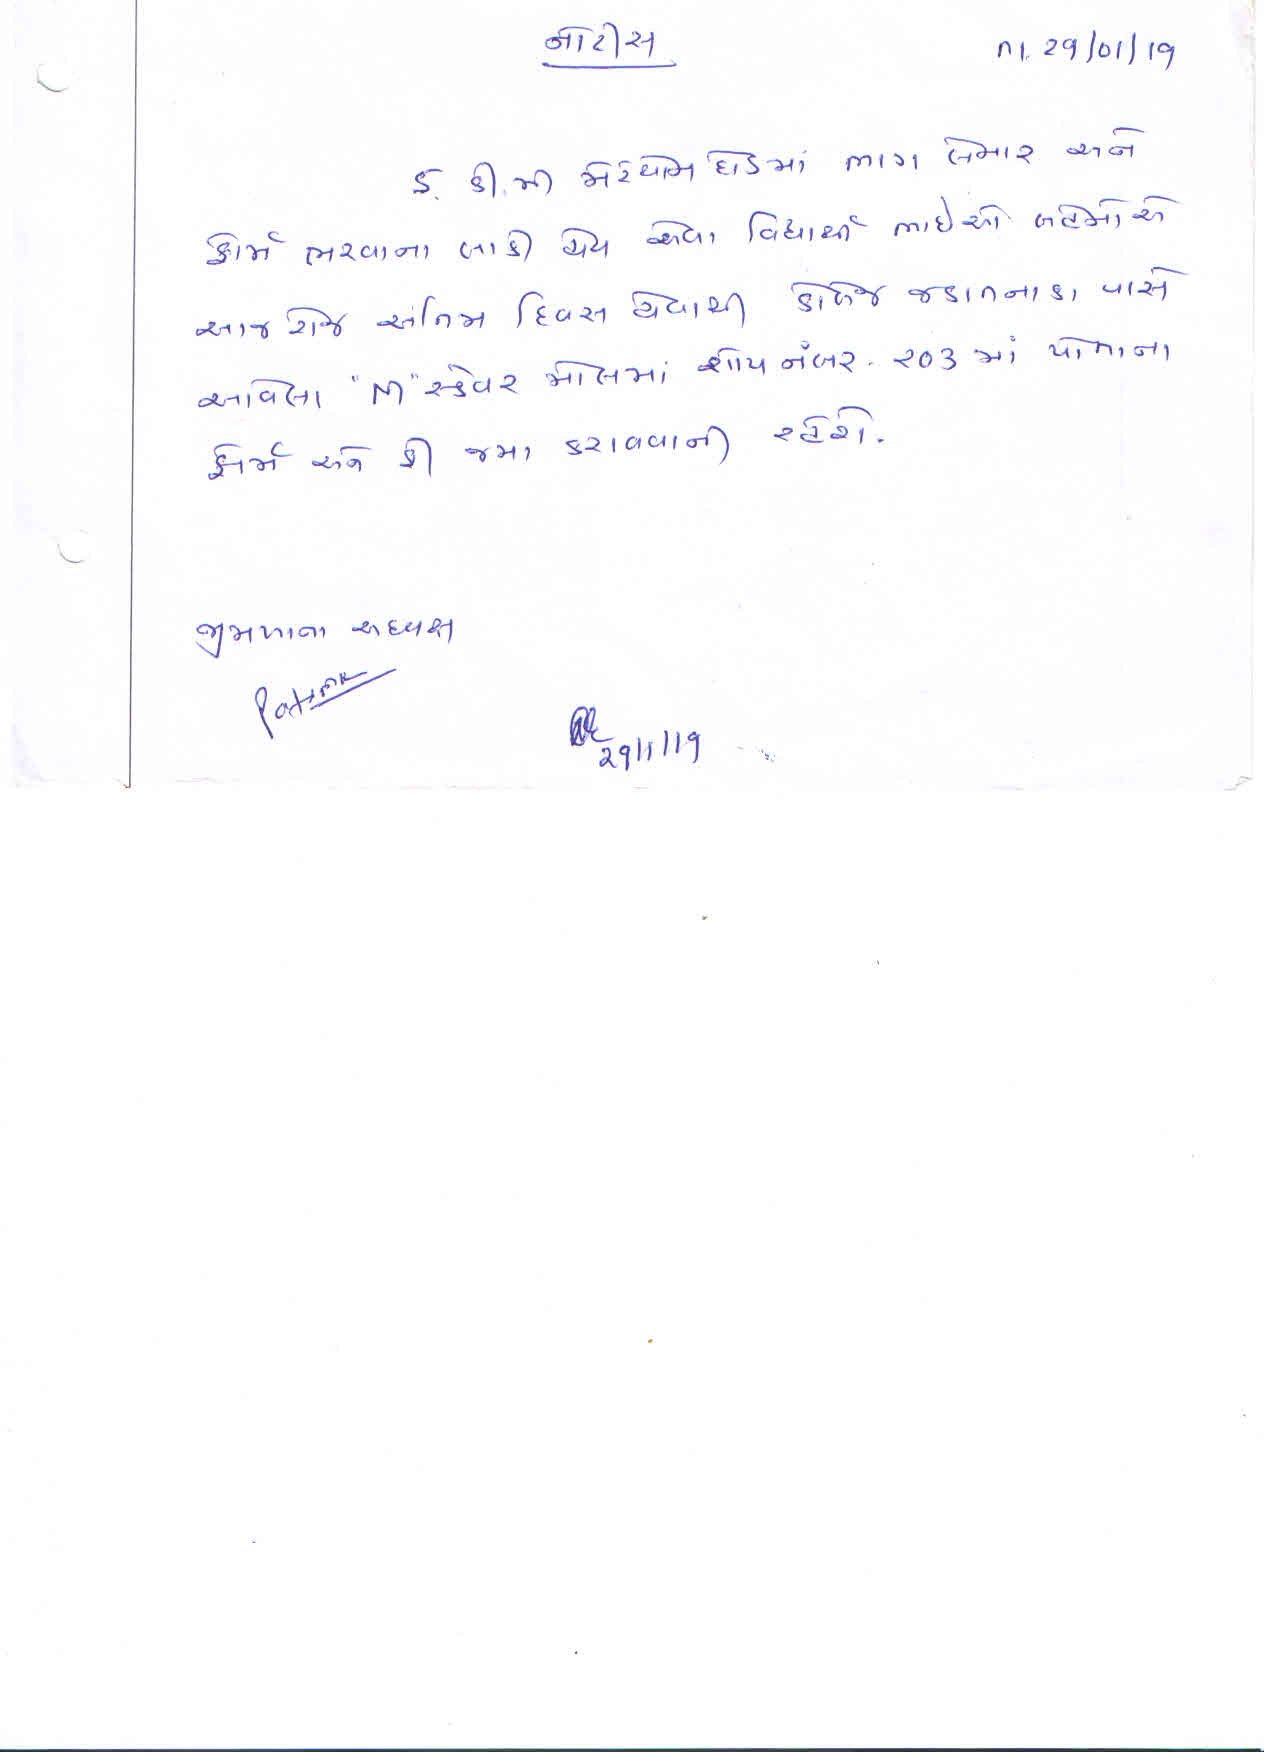 નોટીસ
તા. 29/01/19
ડ. ડી. ની મેરેથોન દોડમાં ભાગ લેનાર અને
ફોર્મ ભરવાના બાકી હોય એવા વિદ્યાર્થી ભાઈઓ બહેનોએ
આજ રોજ અંતિમ દિવસ હોવાથી કોલેજ જકાતનાકા પાસે
આવેલા "M" સ્કેવર મોલમાં શોપ નંબર. ૨૦૩ માં પોતાના
ફોર્મ અને ફી જમા કરાવવાની રહેશે.
જીમખાના અધ્યક્ષ
29/1/19